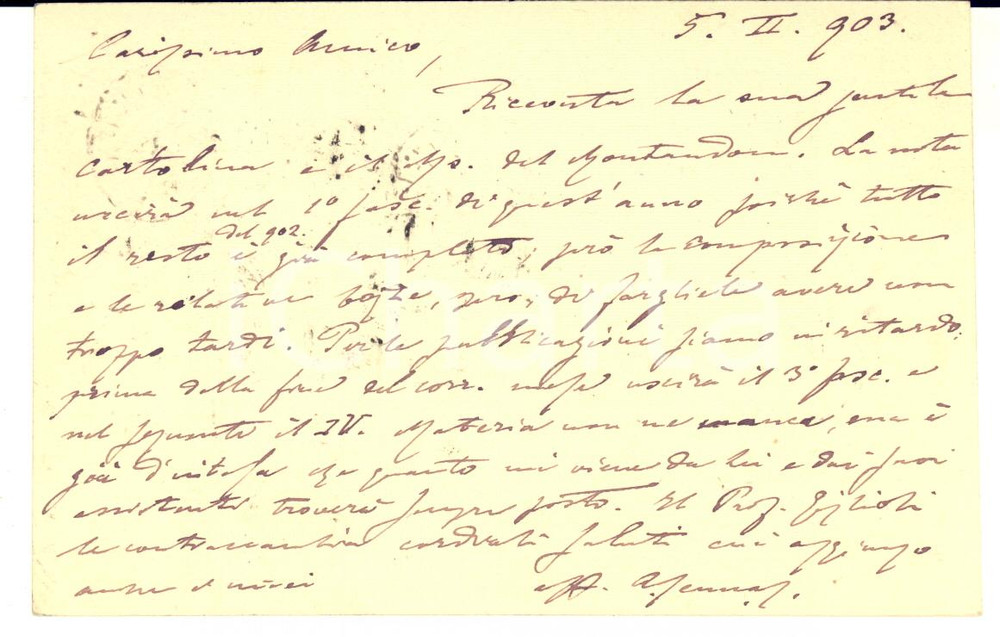 5. II. 903.
Carissimo Amico,
Ricevuta la sua gentile
cartolina e il Ms. del Montandon. La nota
uscirà nel 1º fasc. di quest'anno poichè tutto
il resto del 902. è già completo; però la composizione
e le relative bozze, spero, di fargliele avere non
troppo tardi. Per le pubblicazioni siamo in ritardo;
prima della fine del corr. mese uscirà il 3º fasc. e
nel seguente il IV. Materia non ne manca, ma è
già d'intesa che quanto mi viene da lei e dai suoi
assistenti troverà sempre posto. Il Prof. Giglioli
le contraccambia cordiali saluti cui aggiungo
anche i miei
aff. A. Senna